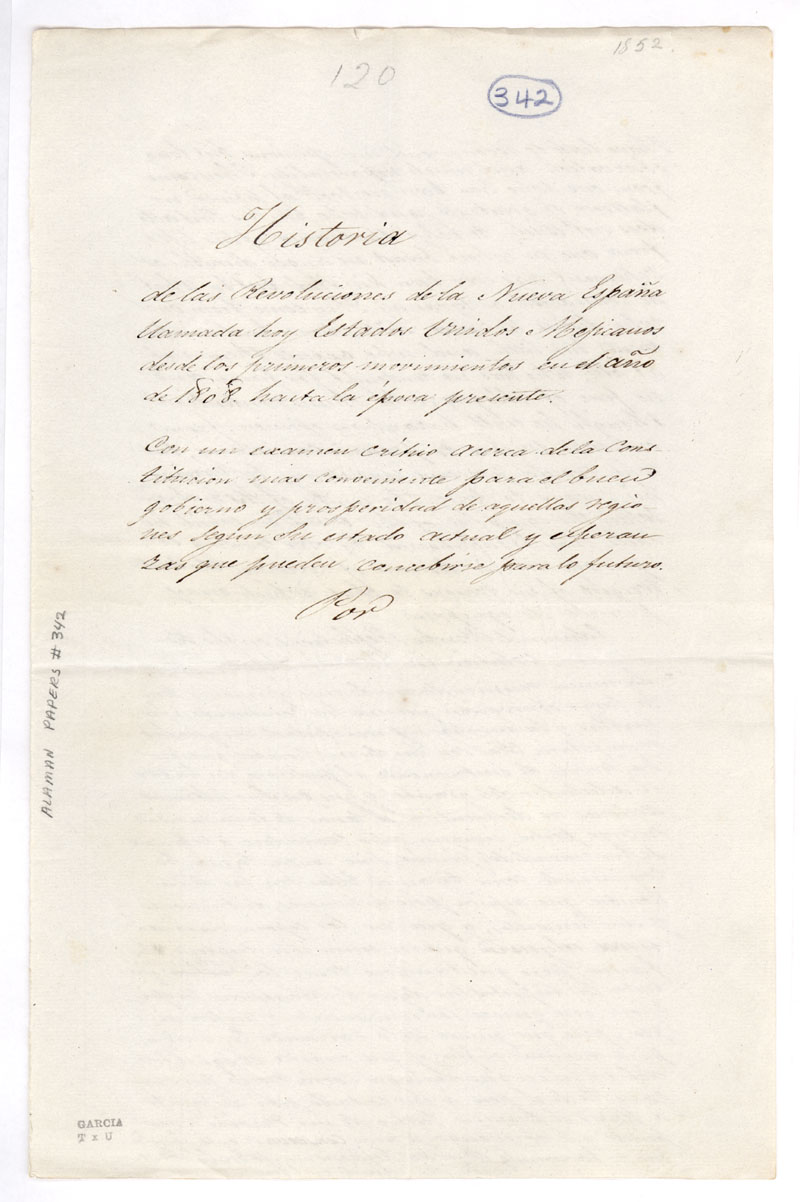 1852.
120
342
Historia
de las Revoluciones de la Nueva España
llamada hoy Estados Unidos Mejicanos
desde los primeros movimientos en el año
de 1808. hasta la época presente.
Con un examen critico acerca de la Cons-
titucion mas conveniente para el buen
gobierno y prosperidad de aquellas regio-
nes segun su estado actual y esperan
zas que pueden concebirse para lo futuro.
Por
ALAMAN PAPERS # 342
GARCIA
T x U